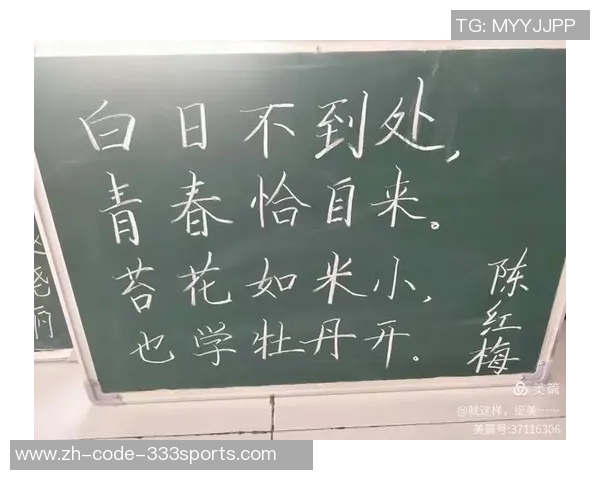 TG: MYYJJPP
白日不到处，
青春恰自来。
苔花如米小，
也学牡丹开。
陈红梅
丽
美篇
@就这样，挺美……
美篇号:37116306
www.zh-code-333sports.com